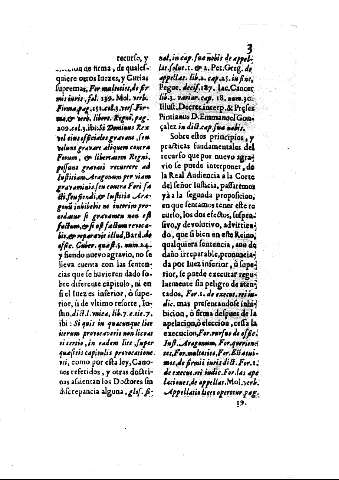 3
recurso, y
con firma, de quales-
quiere otros Iuezes, y Curias
supremas, For multoties, de fir
mis iuris, fal. 139. Mol. verb.
Firma, pag. 151. col. 3. vers. For-
ma, & verb. libere. Regni, pag.
209. col. 3. ibi: Si Dominus Rex
vel eius officiales gravant, seu
velunt gravare aliquem contra
Forum, & libertatem Regni,
possunt gravati recurrere ad
Iustitiam Aragonum per viam
gravaminis, seu contra Fori fa
cti, seu fiendi, & Iustitia Ara-
gonū inhibebit ne interim pro-
cedatur si gravamen non est
factum, & si est factum revoca-
bis, & reparavit illud, Bard. de
offic. Guber. quæst. 5. num. 24.
y siendo nuevo agravio, no se
lleva cuenta con las senten-
cias que se huvieren dado so-
bre diferente capitulo, ni en
si el Iuez es inferior, ò supe-
rior, ù de vltimo resorte, Io-
stin, dict. l. mica, lib. 7. tit. 7.
ibi: Si quis in quacunque liue
iterum provocatione non licea
ei tertio, in eadem lite, super
quæstis capitulis provocatione
rit, como por esta ley, Cano-
nes referidos, y otras doctri-
nas assientan los Doctores sin
discrepancia alguna, glos. fi-
nal, in cap. sua nobis de appel-
lat. solut. 1. & 2. Pet. Greg. de
appellat. lib. 2. cap. 25. in fine,
Pegue. decis. 187. Iac. Cancer.
lib. 3. variar. cap. 18. num. 30.
Illust, Decret. interp. & Præses
Pictianus D. Emmanuel Gon-
çalez in dict. cap. sua nobis.
Sobre estos principios, y
practicas fundamentales del
recurso que por nuevo agra-
vio se puede interponer, de
la Real Audiencia a la Corte
del señor Iusticia, passarèmos
yà a la segunda proposicion,
en que sentamos tener este re
curso, los dos efectos, suspen-
sivo, y devolutivo, advirtien-
do, que si bien en este Reino,
qualquiera sentencia, aun con
daño irreparable, pronuncia-
da por Iuez inferior, ò supe-
rior, se puede executar regu-
larmente sin peligro de aten-
tados, For. 1. de execut. rei iu-
dic. mas presentandose inhi-
bicion, ò firma despues de la
apelacion, ò eleccion, cessa la
execucion, For. rursus de offic.
Iust. Aragonum, For. querien-
tes, For. multoties, For. Estatui-
mus, de firmis iuris dict. For. 1.
de execut. rei iudic. For. las ape
laciones, de appellat. Mol. verb.
Appellatio lites operetur pag.
39.